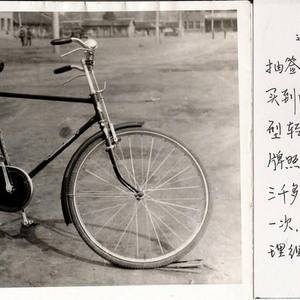 抽签
买到
型轻
牌照
三千多
一次.
理组